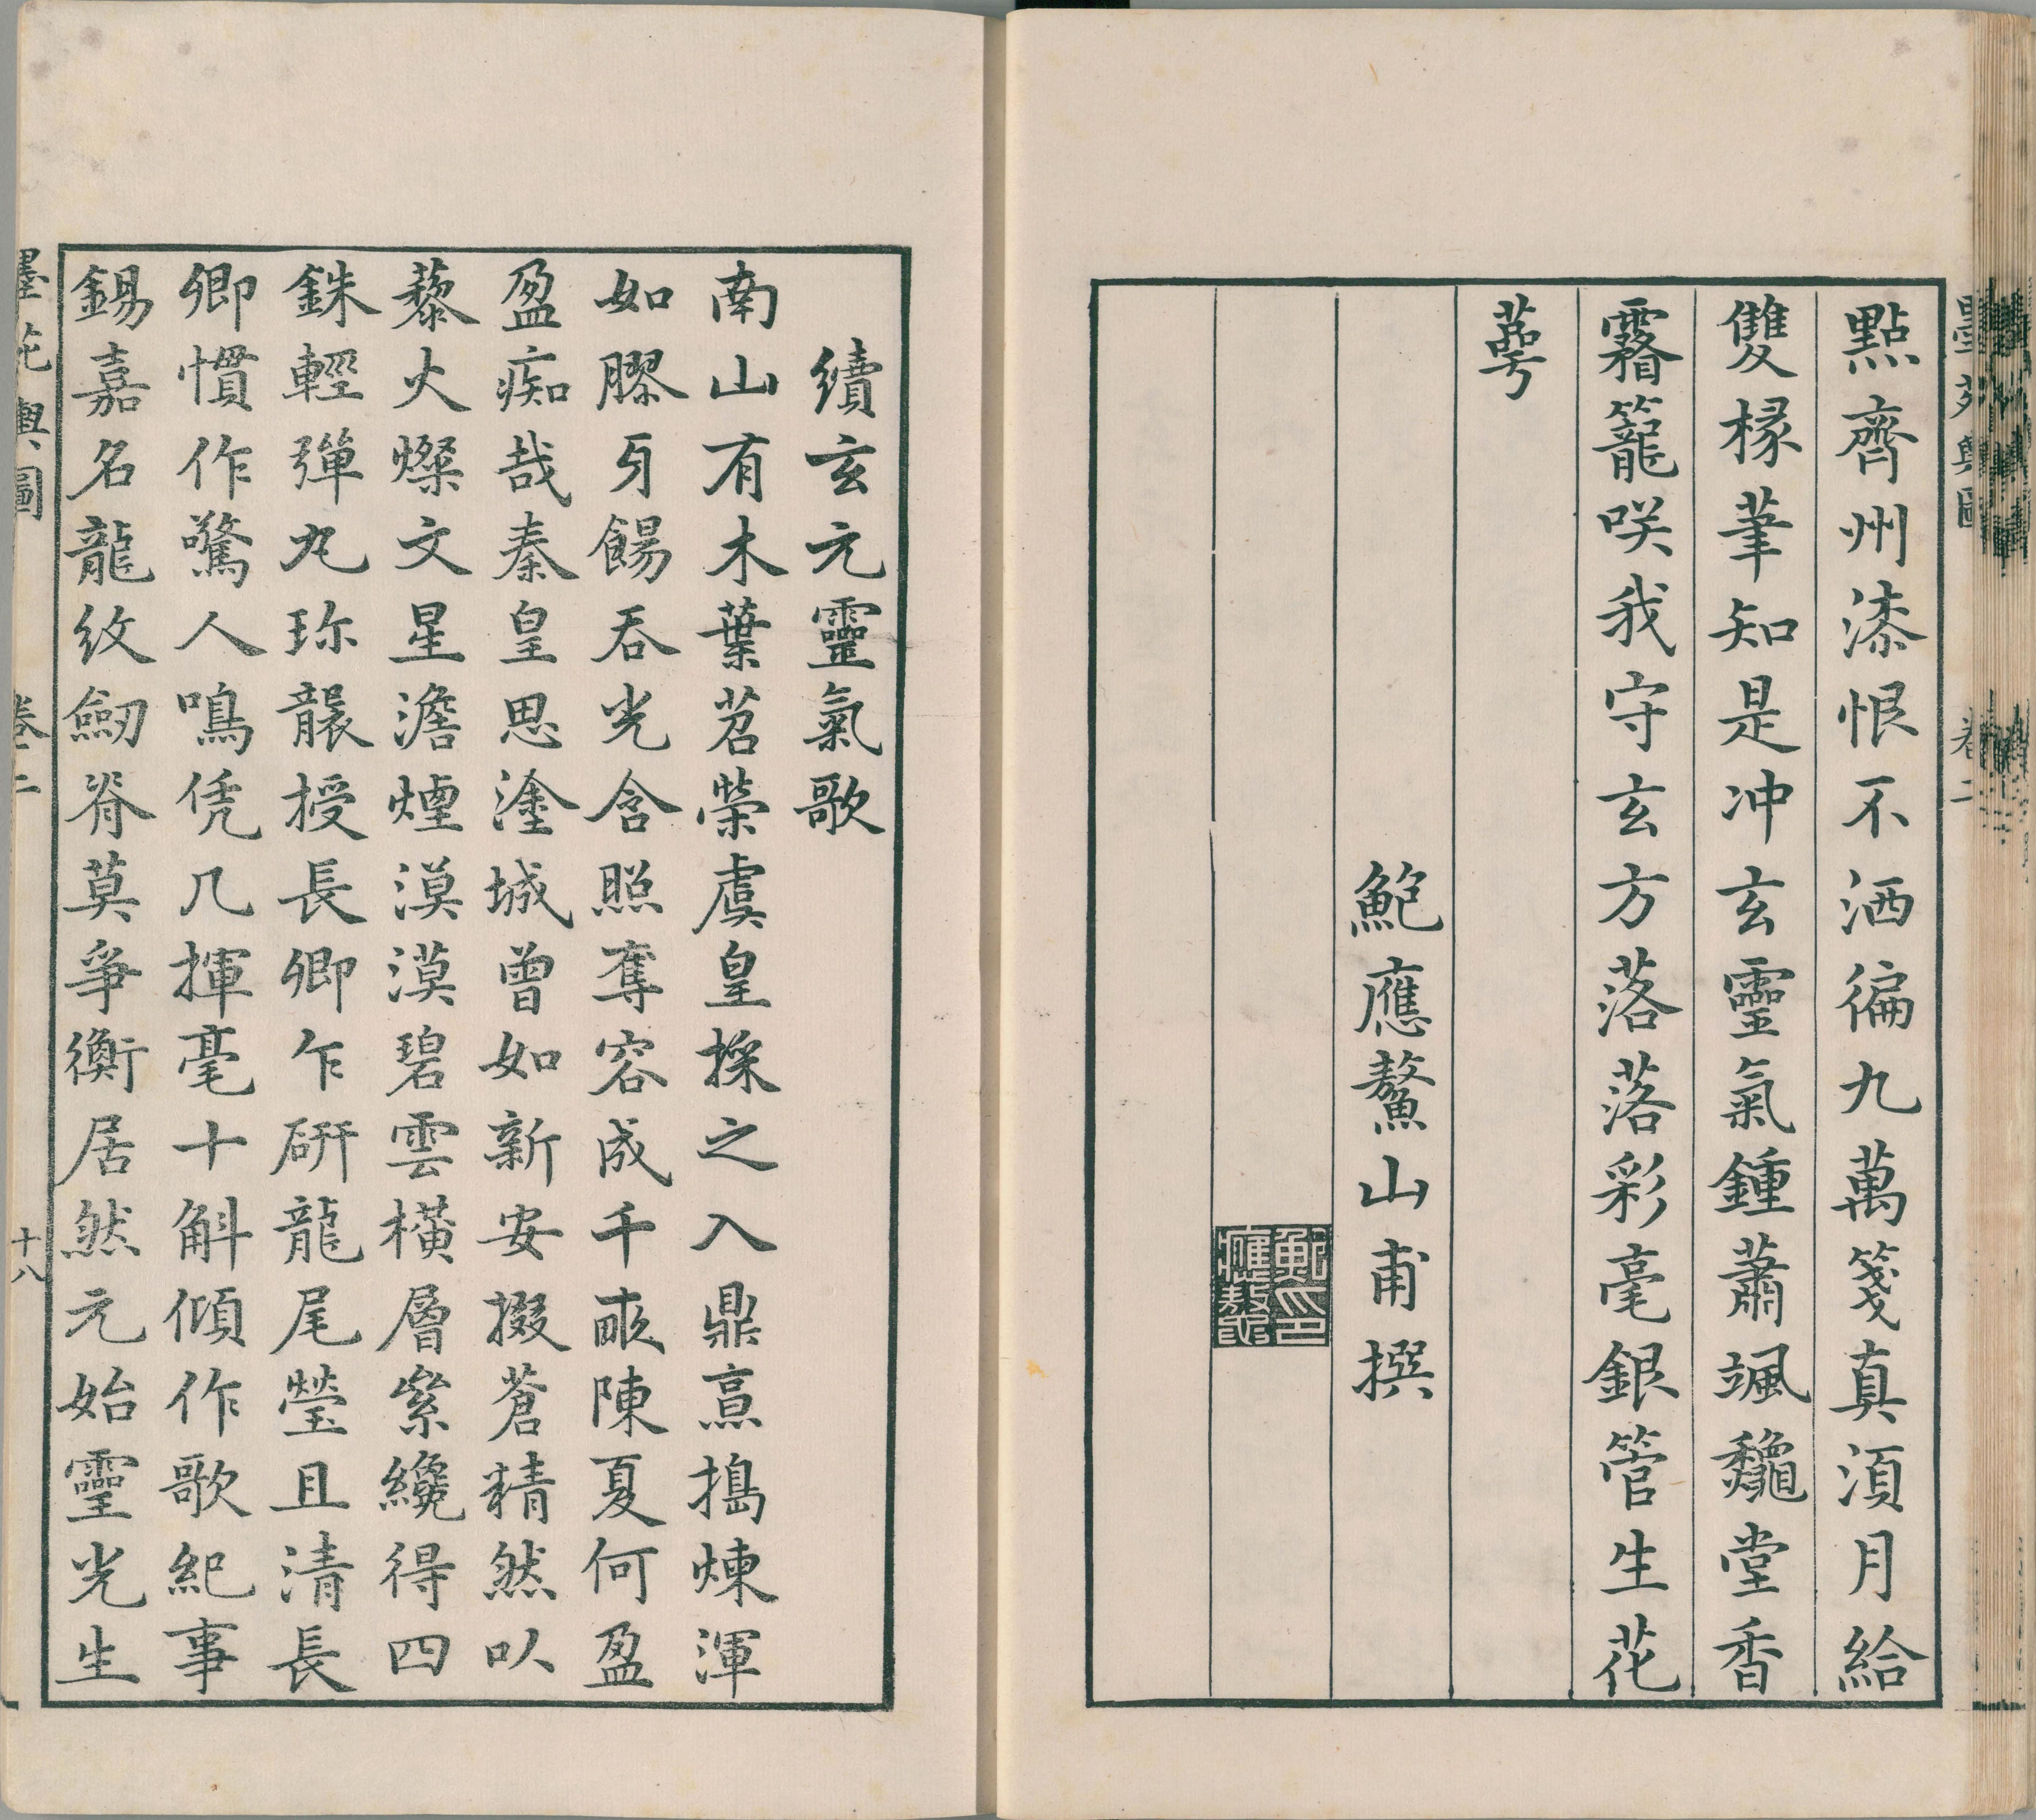 點齊州漆恨不洒徧九萬箋真湏月給
雙椽筆知是冲玄靈氣鍾蕭颯龝堂香
霧籠咲我守玄方落落彩毫銀管生花
萼
鮑應鰲山甫撰
鮑應鰲印
續玄元靈氣歌
南山有木葉苕榮虞皇採之入鼎烹搗煉渾
如膠㐄餳吞光含照奪容成千畝陳夏何盈
盈痴哉秦皇思塗城曾如新安掇蒼精然以
藜火燦文星澹煙漠漠碧雲橫層絫纔得四
銖輕彈丸珎襲授長卿乍硏龍尾瑩且清長
卿慣作驚人鳴凭几揮毫十斛傾作歌紀事
錫嘉名龍紋劒脊莫爭衡居然元始靈光生
墨苑輿圖
卷二
十八